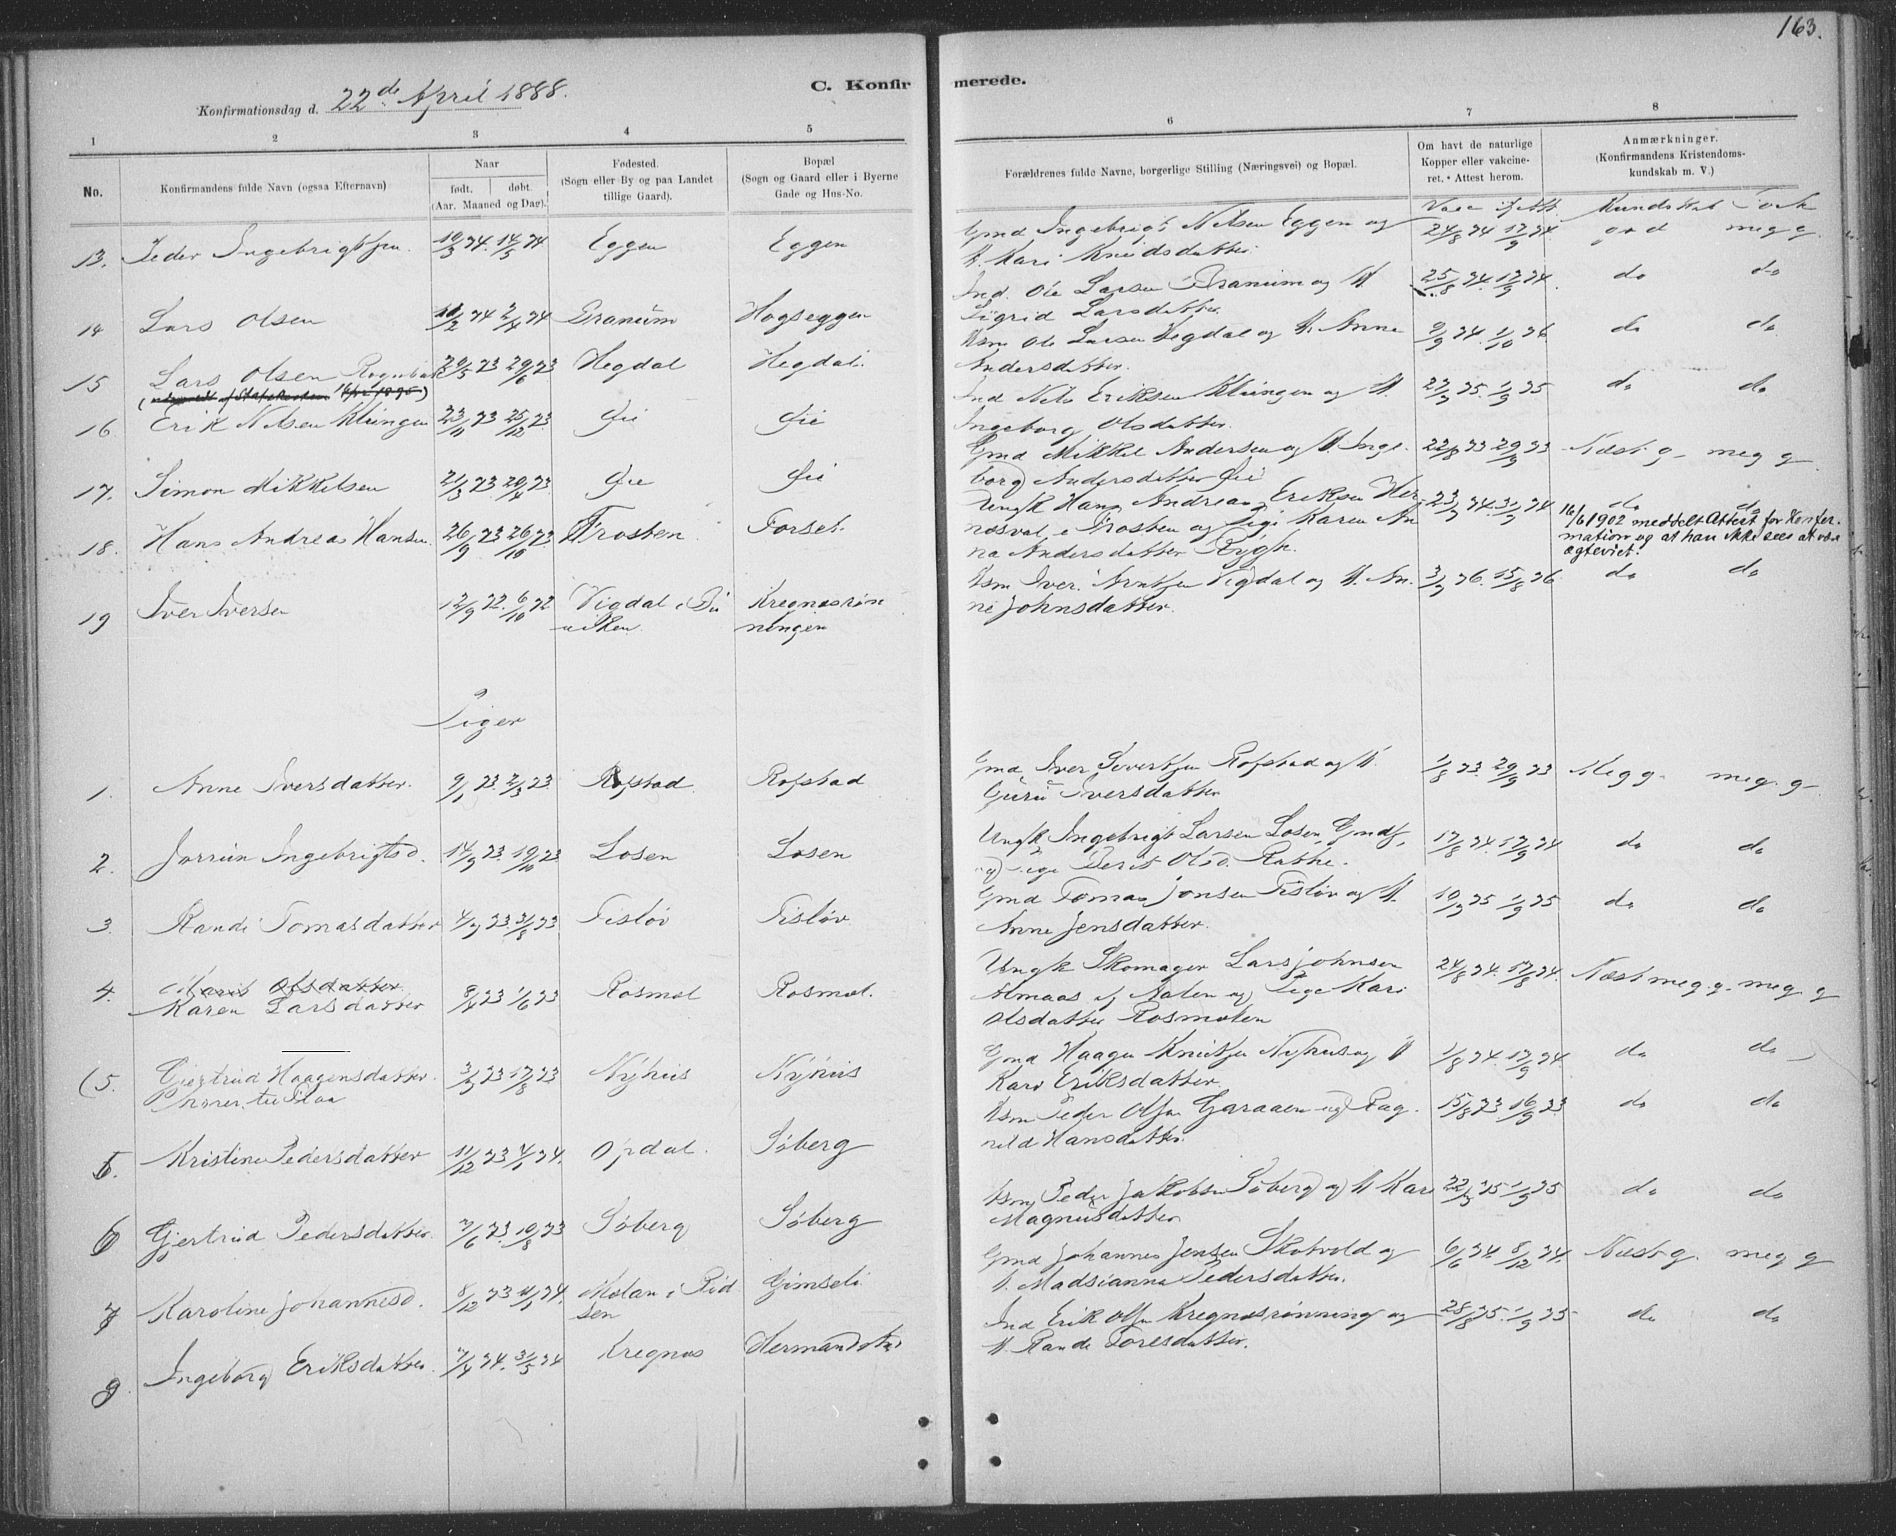 163.
C. Konfirmerede.
Konfirmationsdag d. 22de April 1888.
1 2 3 4 5 6 7 8
No.
Konfirmandens fulde Navn (ogsaa Efternavn)
Naar
født. døbt.
(Aar. Maaned og Dag).
Fødested.
(Sogn eller By og paa Landet
tillige Gaard).
Bopæl
(Sogn og Gaard eller i Byerne
Gade og Hus-No.
Forældrenes fulde Navne, borgerlige Stilling (Næringsvei) og Bopæl.
Om havt de naturlige
Kopper eller vakcine-
ret. Attest herom.
Anmærkninger.
(Konfirmandens Kristendoms-
kundskab m. V.)
Vacc. Att. Kundskab
13. Peder Ingebrigtsen 10/3 74. 14/5 74 Eggen Eggen Gmd Ingebrigt Nilsen Eggen og 24/8 74 17/9 74. god meg g.
H. Kari Knudsdatter.
14 Lars Olsen 10/2 74 2/4 74 Granum Hogseggen Ind. Ole Larsen Granum og H 25/8 74. 17/9 74. do do
Sigrid Larsdatter
15 Lars Olsen 29/5 73 29/6 73 Hegdal Hegdal. Hsm Ole Larsen Hegdal og H. Anne 9/9 74. 1/10 76 do do
Andersdatter.
16 Erik Nilsen Klungen 23/11 73 25/12 73. Øie Øie Ind Nils Eriksen Klungen og H. 27/7 75. 1/9 75 do do
Ingeborg Olsdatter.
17. Simon Mikkelsen 21/3 73 20/4 73 Øie Øie Gmd Mikkel Andersen og H Inge- 22/8 73 29/9 73 Næst g meg g
borg Andersdatter Øie
18. Hans Andreas Hansen 26/9 73 26/10 73 Frosten Forset. Ungk Hans Andreas Eriksen Her- 23/7 74. 31/7 74 do do
nesval, e Frosten og Pige Karen An
na Andersdatter Rygh.
16/6 1902 meddelt Attest for Konfir-
mation og at han ikke sees at være
ægteviet.
19 Iver Iversen 12/9 72. 6/10 72 Vigdal i Bu Kregnesrøn Hsm Iver Arntsen Vigdal og H. An. 3/7 76. 15/8 76 do do
viken. ningen
ne Johnsdatter.
Piger
1. Anne Iversdatter. 9/1 73. 2/3 73. Rofstad Rofstad Gmd Iver Sivertsen Rofstad og H. 1/8 73. 29/9 73 Meg g. meg. g
Guru Iversdatter
2. Jorrun Ingebrigtsd. 14/9 73. 19/10 73 Losen Losen Ungk Ingebrigt Larsen Losen, Gmds, 17/8 74. 17/9 74 do do
og Pige Berit Olsd.
3. Randi Tomasdatter 4/7 73. 3/8 73 Tisløv Tisløv. Gmd Tomas Jonsen Tisløv og H. 10/7 75 1/9 75 do do
Anne Jensdatter.
4. Marit Olsdatter
Karen Larsdatter 8/4 73 1/6 73 Rosmol Rosmol. Ungk Skomager Lars Johnsen 24/8 74. 17/8 74. Næst meg. g. meg. g
Almaas af Aalen og Pige Kari
Olsdatter Rosmolen
(5. Gjertrud Haagensdatter. 3/7 73 17/8 73 Nyhus Nyhus Gmd Haagen Knutsen Nyhus og H 1/8 74. 17/9 74. do do
hører til Flaa
Kari Eriksdatter.
5. Kristine Pedersdatter 11/12 73 4/1 74. Opdal. Søberg Hsm Peder Olsen Garaaen og Rag. 15/8 73 16/9 73 do do
nild Hansdatter.
6 Gjertrud Pedersdatter. 7/6 73. 10/8 73 Søberg Søberg Hsm, Peder Jakobsen Søberg og H Kari 22/7 75 1/9 75 do do
Magnusdatter
7 Karoline Johannesd. 8/12 73 11/1 74. Molan i Bud Gimseli Gmd Johannes Jensen Skotvold og 6/6 74. 8/12 74. Næst g. meg g
sen
H. Madsianna Pedersdatter.
8 Ingeborg Eriksdatter. 7/4 74. 31/5 74 Kregnes Ind Erik Olsen Kregnesrønning og 28/8 75. 1/9 75 do do
H Randi Toresdatter.